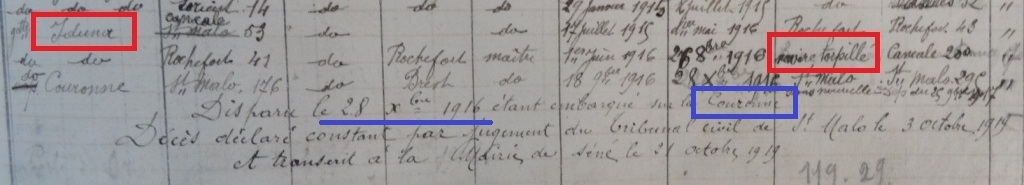 do do do Lorient 14 do do do 29 janvier 1915 2 juillet 1915
Iduna Cancale St Malo 53 do do 17 juillet 1915 mai 1916 Rochefort Rochefort
do do Rochefort 41 Rochefort maître 1er juin 1916 26 8bre 1916 navire torpillé Cancale 260
do Couronne St Malo, 176 Brest do 18 9bre 1916 28 Xbre 1916 St Malo St Malo 296
Disparu le 28 Xbre 1916 étant embarqué sur la Couronne
Décès déclaré constant par jugement du tribunal civil de St Malo le 3 octobre 1919
et transcrit à la Mairie de Séné le 21 octobre 1919
119. 29.